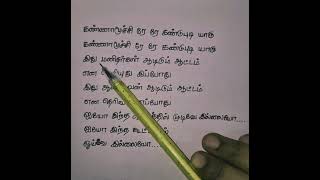 கண்ணாமூச்சி ரே ரே கண்டுபுடி யாரு
கண்ணாமூச்சி ரே ரே கண்டுபுடி யாரு
இது மனிதர்கள் ஆடிடும் ஆட்டம்
என இப்போது
இது ஆடிடும் ஆட்டம்
என
ஐயோ இந்த முடிவே இல்லையோ...
ஐயோ இந்த
ஓய்வே இல்லையோ...